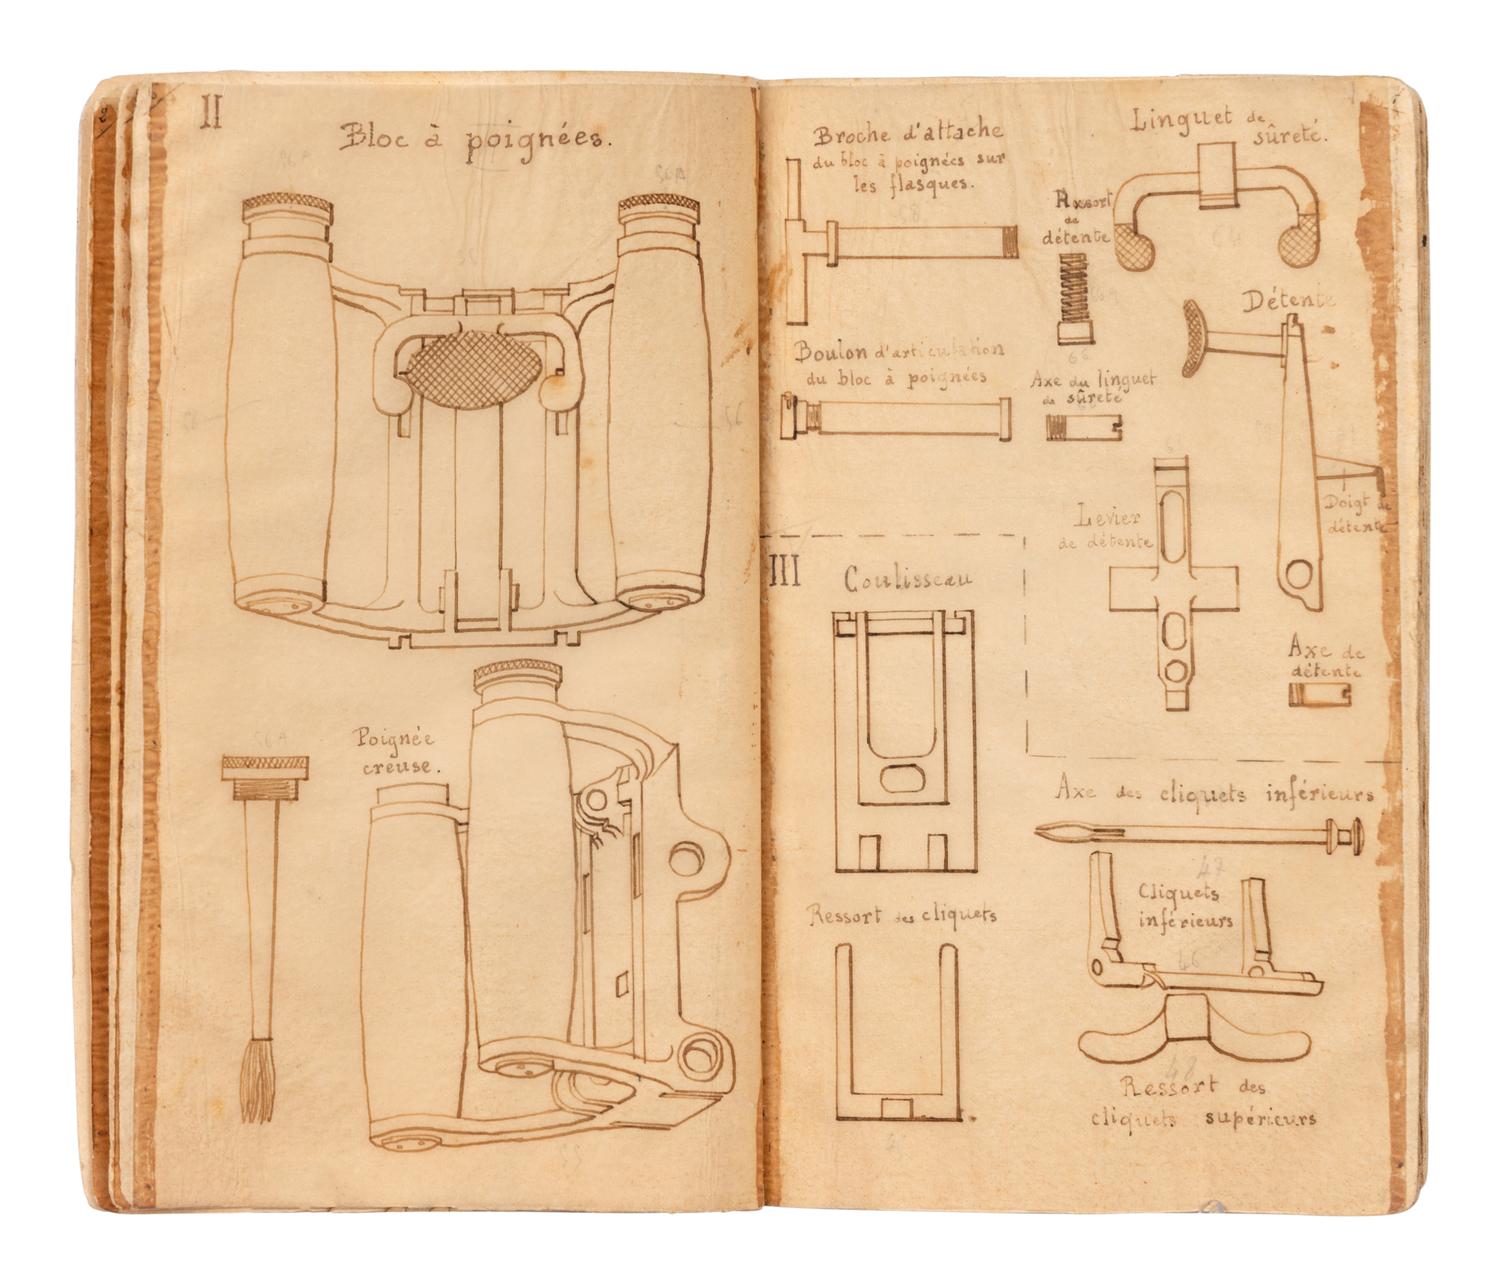 II
Bloc à poignées.
Poignée
creuse.
Broche d'attache
du bloc à poignées sur
les flasques.
Linguet de
sûreté.
Ressort
de
détente
Détente
Boulon d'articulation
du bloc à poignées
66
Axe du linguet
de sûreté
Doigt de
détente
Levier
de détente
III
Coulisseau
Axe de
détente
Axe des cliquets inférieurs
47
Cliquets
inférieurs
46
Ressort des cliquets
48
Ressort des
cliquets supérieurs